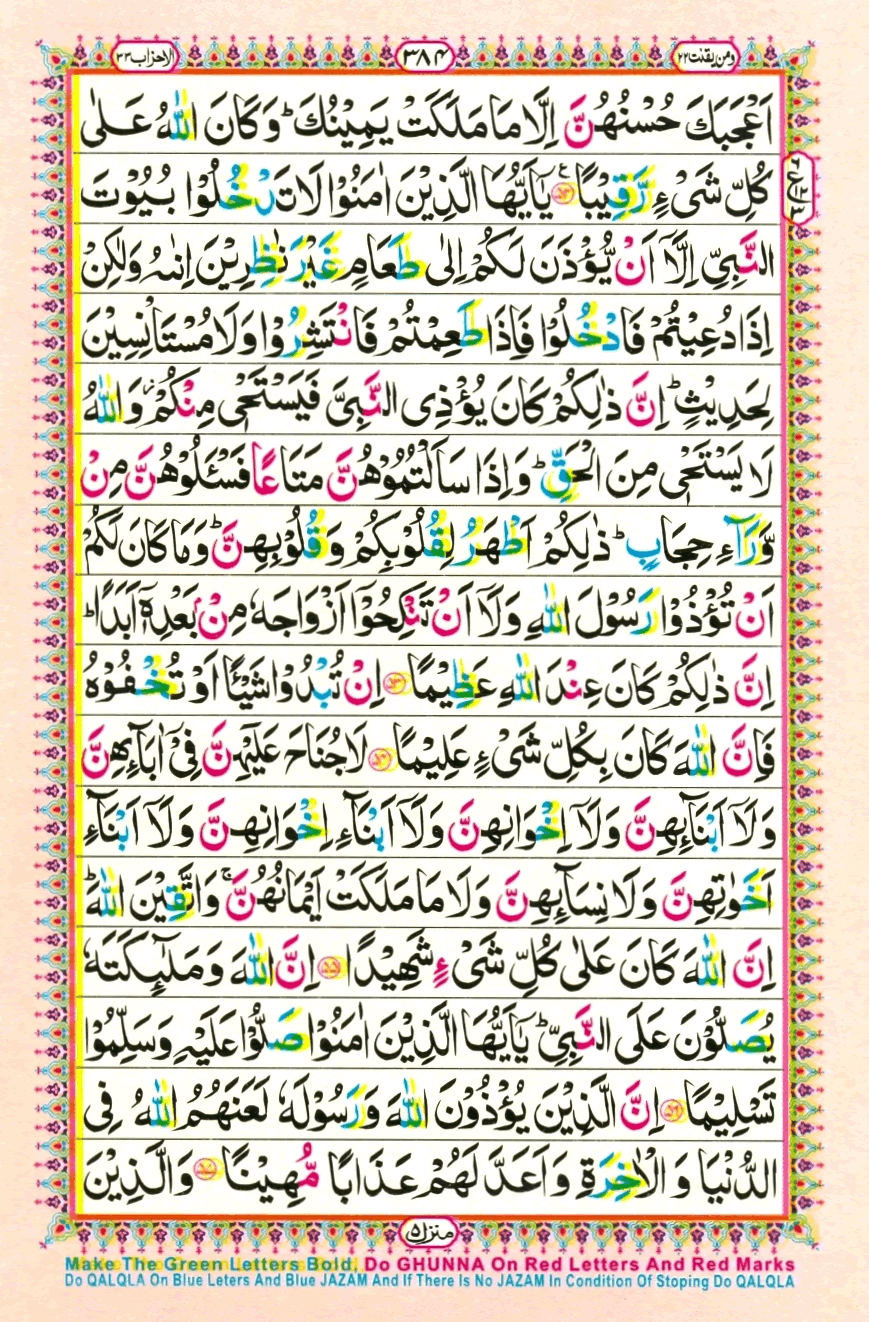 ومن يقنت ٢٢
٣٨٤
الاحزاب ٣٣
اَعْجَبَكَ حُسْنُهُنَّ اِلَّا مَا مَلَكَتْ يَمِيْنُكَ ؕ وَكَانَ اللّٰهُ عَلٰى
كُلِّ شَىْءٍ رَّقِيْبًا ۝۵۲ يٰۤاَيُّهَا الَّذِيْنَ اٰمَنُوْا لَا تَدْخُلُوْا بُيُوْتَ
النَّبِىِّ اِلَّاۤ اَنْ يُّؤْذَنَ لَـكُمْ اِلٰى طَعَامٍ غَيْرَ نٰظِرِيْنَ اِنٰٮهُ وَلٰـكِنْ
اِذَا دُعِيْتُمْ فَادْخُلُوْا فَاِذَا طَعِمْتُمْ فَانْتَشِرُوْا وَلَا مُسْتَاْنِسِيْنَ
لِحَدِيْثٍ ؕ اِنَّ ذٰلِكُمْ كَانَ يُؤْذِى النَّبِىَّ فَيَسْتَحْىٖ مِنْكُمْ ز وَاللّٰهُ
لَا يَسْتَحْىٖ مِنَ الْحَقِّ ؕ وَاِذَا سَاَلْتُمُوْهُنَّ مَتَاعًا فَسْـَٔـلُوْهُنَّ مِنْ
وَّرَآءِ حِجَابٍ ؕ ذٰلِكُمْ اَطْهَرُ لِقُلُوْبِكُمْ وَقُلُوْبِهِنَّ ؕ وَمَا كَانَ لَكُمْ
اَنْ تُؤْذُوْا رَسُوْلَ اللّٰهِ وَلَاۤ اَنْ تَنْكِحُوْۤا اَزْوَاجَهٗ مِنْۢ بَعْدِهٖۤ اَبَدًا ؕ
اِنَّ ذٰلِكُمْ كَانَ عِنْدَ اللّٰهِ عَظِيْمًا ۝۵۳ اِنْ تُبْدُوْا شَيْـًٔا اَوْ تُخْفُوْهُ
فَاِنَّ اللّٰهَ كَانَ بِكُلِّ شَىْءٍ عَلِيْمًا ۝۵۴ لَا جُنَاحَ عَلَيْهِنَّ فِىْۤ اٰبَآٮِٕهِنَّ
وَلَاۤ اَبْنَآٮِٕهِنَّ وَلَاۤ اِخْوَانِهِنَّ وَلَاۤ اَبْنَآءِ اِخْوَانِهِنَّ وَلَاۤ اَبْنَآءِ
اَخَوٰتِهِنَّ وَلَا نِسَآٮِٕهِنَّ وَلَا مَا مَلَكَتْ اَيْمَانُهُنَّ ۚ وَاتَّقِيْنَ اللّٰهَ ؕ
اِنَّ اللّٰهَ كَانَ عَلٰى كُلِّ شَىْءٍ شَهِيْدًا ۝۵۵ اِنَّ اللّٰهَ وَمَلٰٓٮِٕكَتَهٗ
يُصَلُّوْنَ عَلَى النَّبِىِّ ؕ يٰۤاَيُّهَا الَّذِيْنَ اٰمَنُوْا صَلُّوْا عَلَيْهِ وَسَلِّمُوْا
تَسْلِيْمًا ۝۵۶ اِنَّ الَّذِيْنَ يُؤْذُوْنَ اللّٰهَ وَرَسُوْلَهٗ لَعَنَهُمُ اللّٰهُ فِى
الدُّنْيَا وَالْاٰخِرَةِ وَاَعَدَّ لَهُمْ عَذَابًا مُّهِيْنًا ۝۵۷ وَالَّذِيْنَ
منزل ۵
Make The Green Letters Bold, Do GHUNNA On Red Letters And Red Marks
Do QALQLA On Blue Leters And Blue JAZAM And If There Is No JAZAM In Condition Of Stoping Do QALQLA